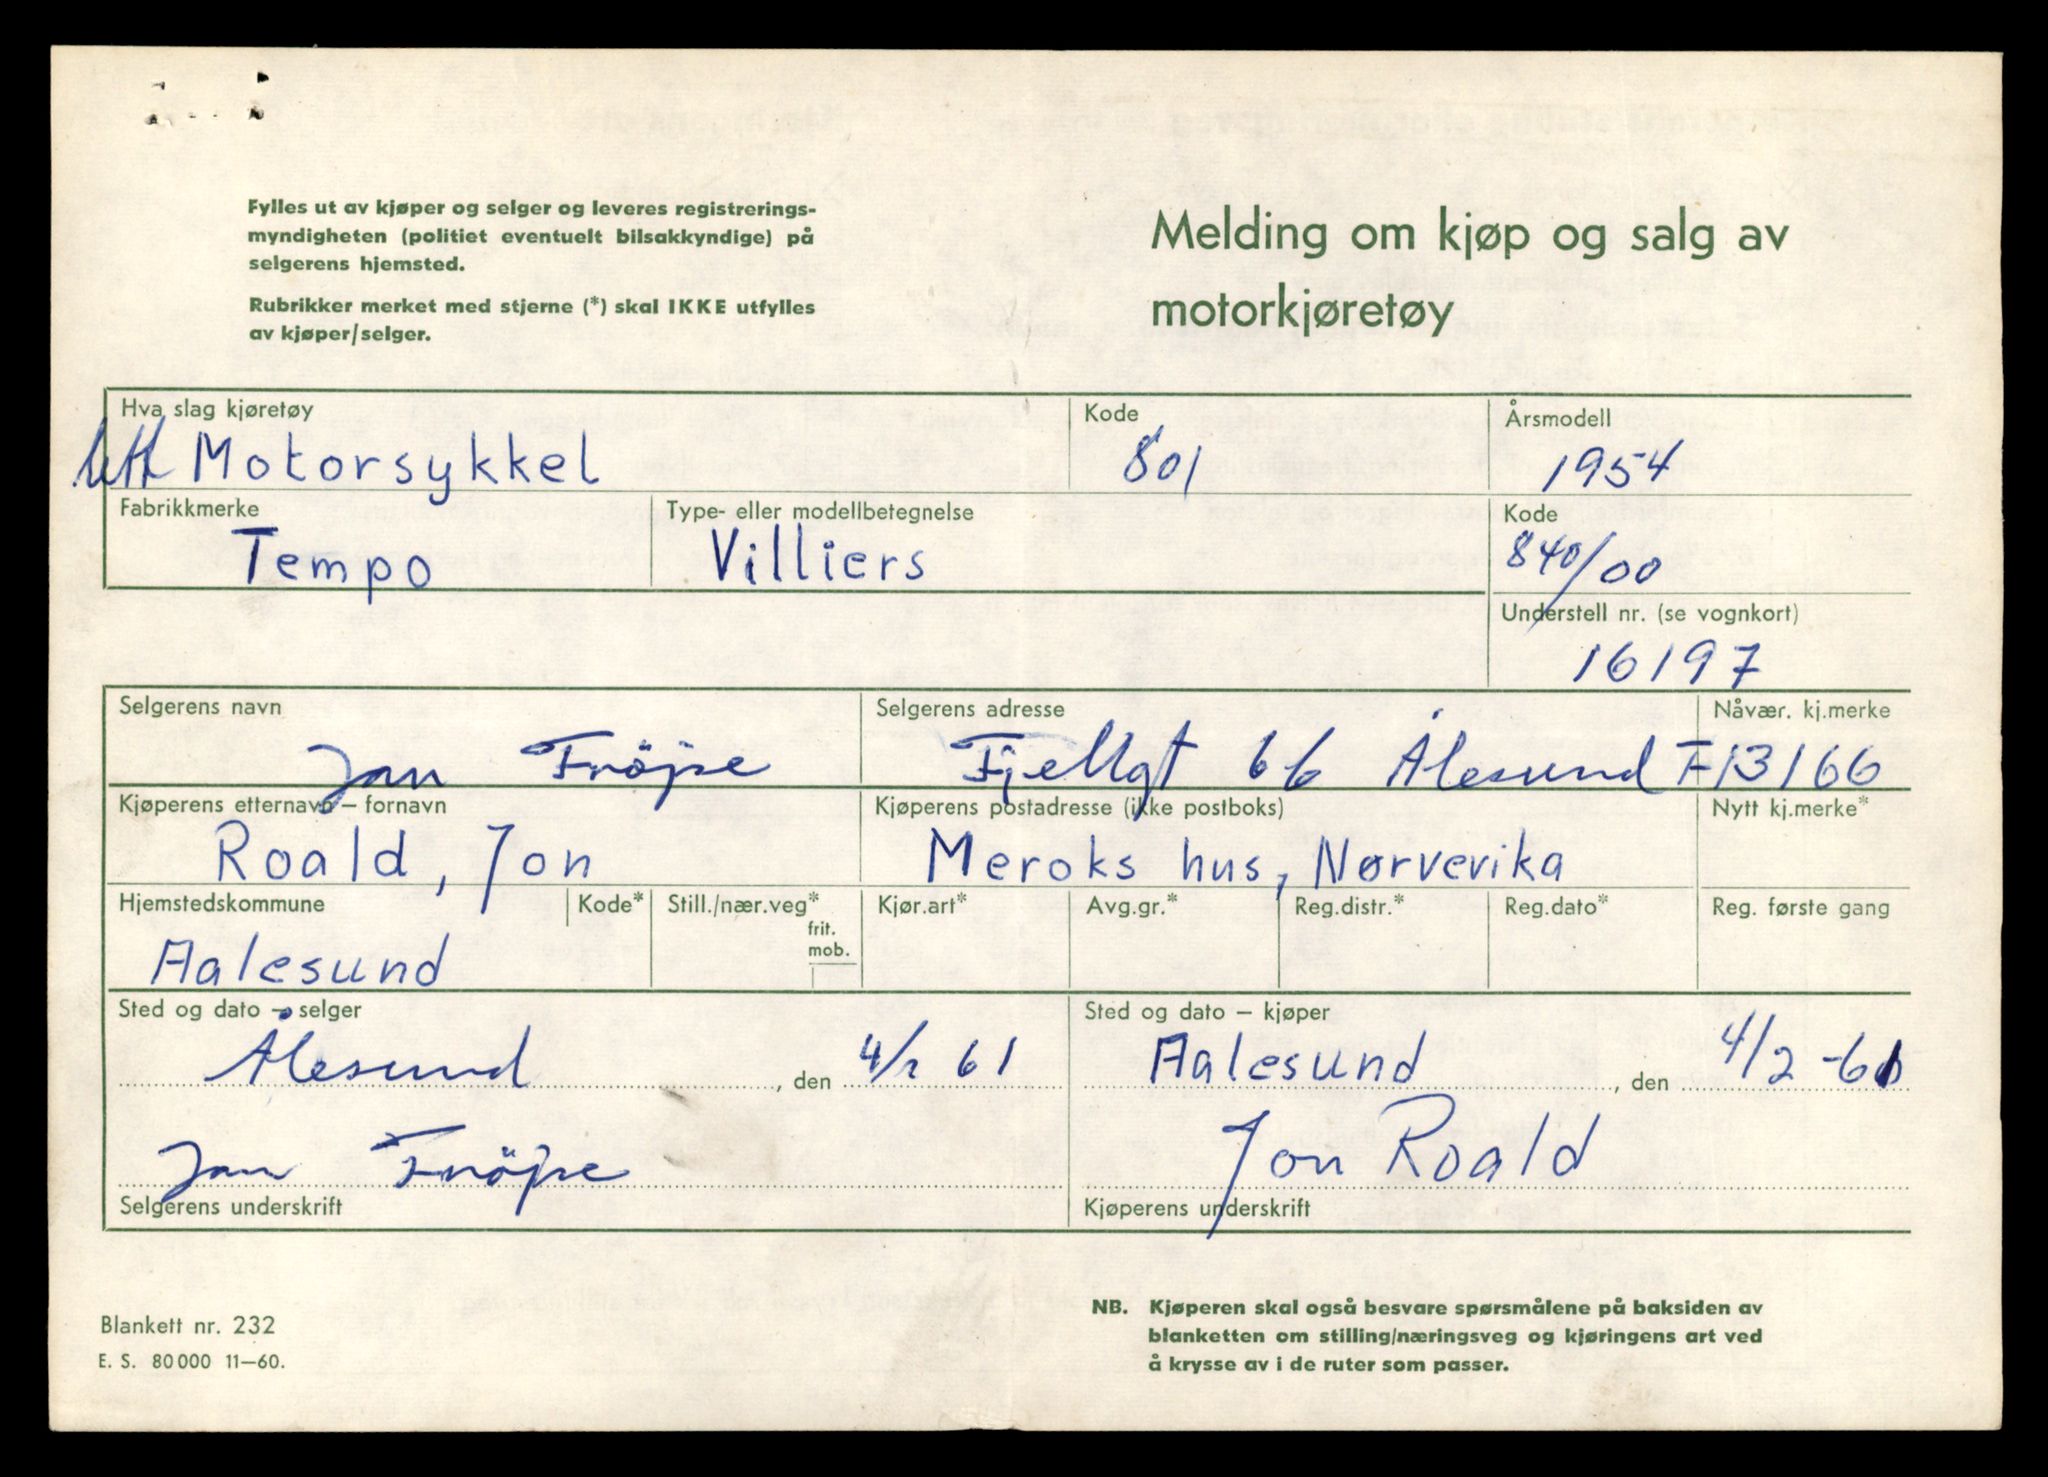 Fylles ut av kjøper og selger og leveres registrerings-
myndigheten (politiet eventuelt bilsakkyndige) på
selgerens hjemsted.
Rubrikker merket med stjerne (*) skal IKKE utfylles
av kjøper/selger.
Melding om kjøp og salg av
motorkjøretøy
Hva slag kjøretøy Kode Årsmodell
lett Motorsykkel 801 1954
Fabrikkmerke Type- eller modellbetegnelse Kode
Tempo Villiers 840/00
Understell nr. (se vognkort)
16197
Selgerens navn Selgerens adresse Nåvær. kj.merke
Jan Fröjse Fjellgt 66 Ålesund F 13166
Kjøperens etternavn – fornavn Kjøperens postadresse (ikke postboks) Nytt kj.merke*
Roald, Jon Meroks hus, Nørvevika
Hjemstedskommune Kode* Still./nær.veg* Kjør.art* Avg.gr.* Reg.distr.* Reg.dato* Reg. første gang
frit.
mob.
Aalesund
Sted og dato – selger Sted og dato – kjøper
Ålesund, den 4/2 61 Aalesund, den 4/2 -61
Jan Fröjse Jon Roald
Selgerens underskrift Kjøperens underskrift
Blankett nr. 232
E. S. 80000 11–60.
NB. Kjøperen skal også besvare spørsmålene på baksiden av
blanketten om stilling/næringsveg og kjøringens art ved
å krysse av i de ruter som passer.